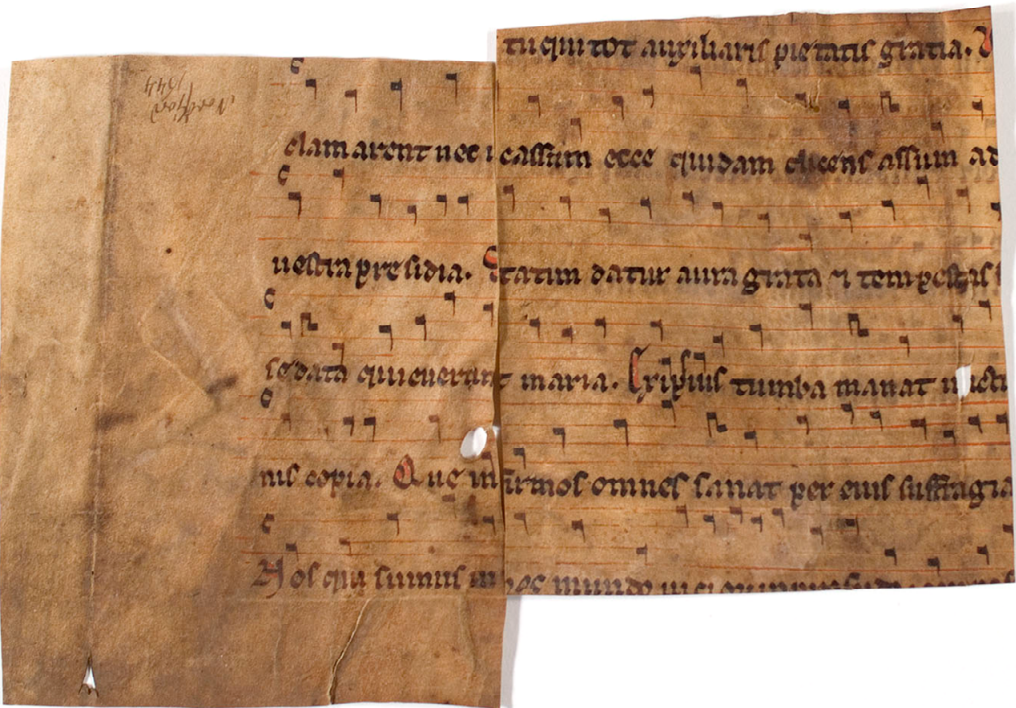 tu qui tot auxiliaris pietatis gratia.
clamarent nec icassum ecce quidam dicens assum ad
uestra presidia. Statim datur aura grata ⁊ tempestas
sedata quieuerunt maria. Ex ipsius tumba manat
nis copia. Que infirmos omnes sanat per eius suffragia
Nos qui sumus in hoc mundo uicio